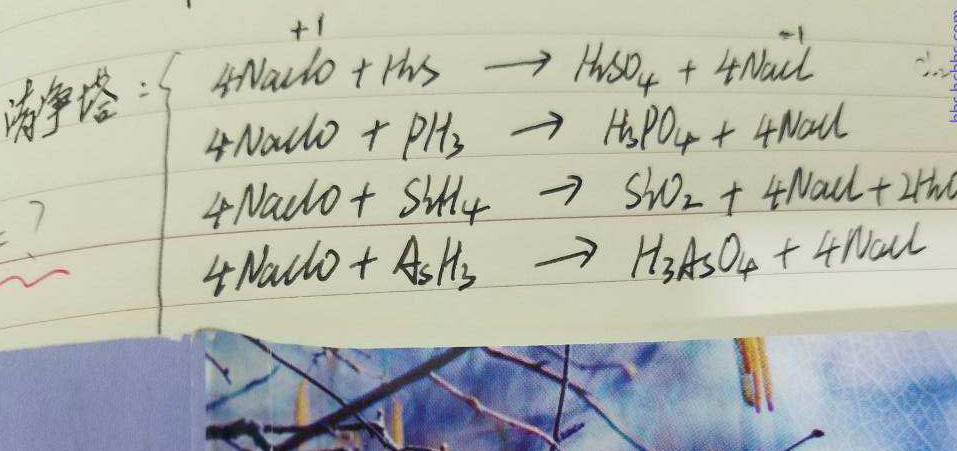 清净塔:
+1 -1
4NaClO + H₂S → H₂SO₄ + 4NaCl
4NaClO + PH₃ → H₃PO₄ + 4NaCl
4NaClO + SiH₄ → SiO₂ + 4NaCl + 2H₂O
4NaClO + AsH₃ → H₃AsO₄ + 4NaCl